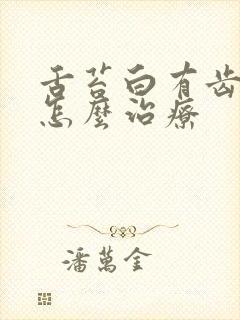 舌苔白有齿
怎麼治療
潘萬金